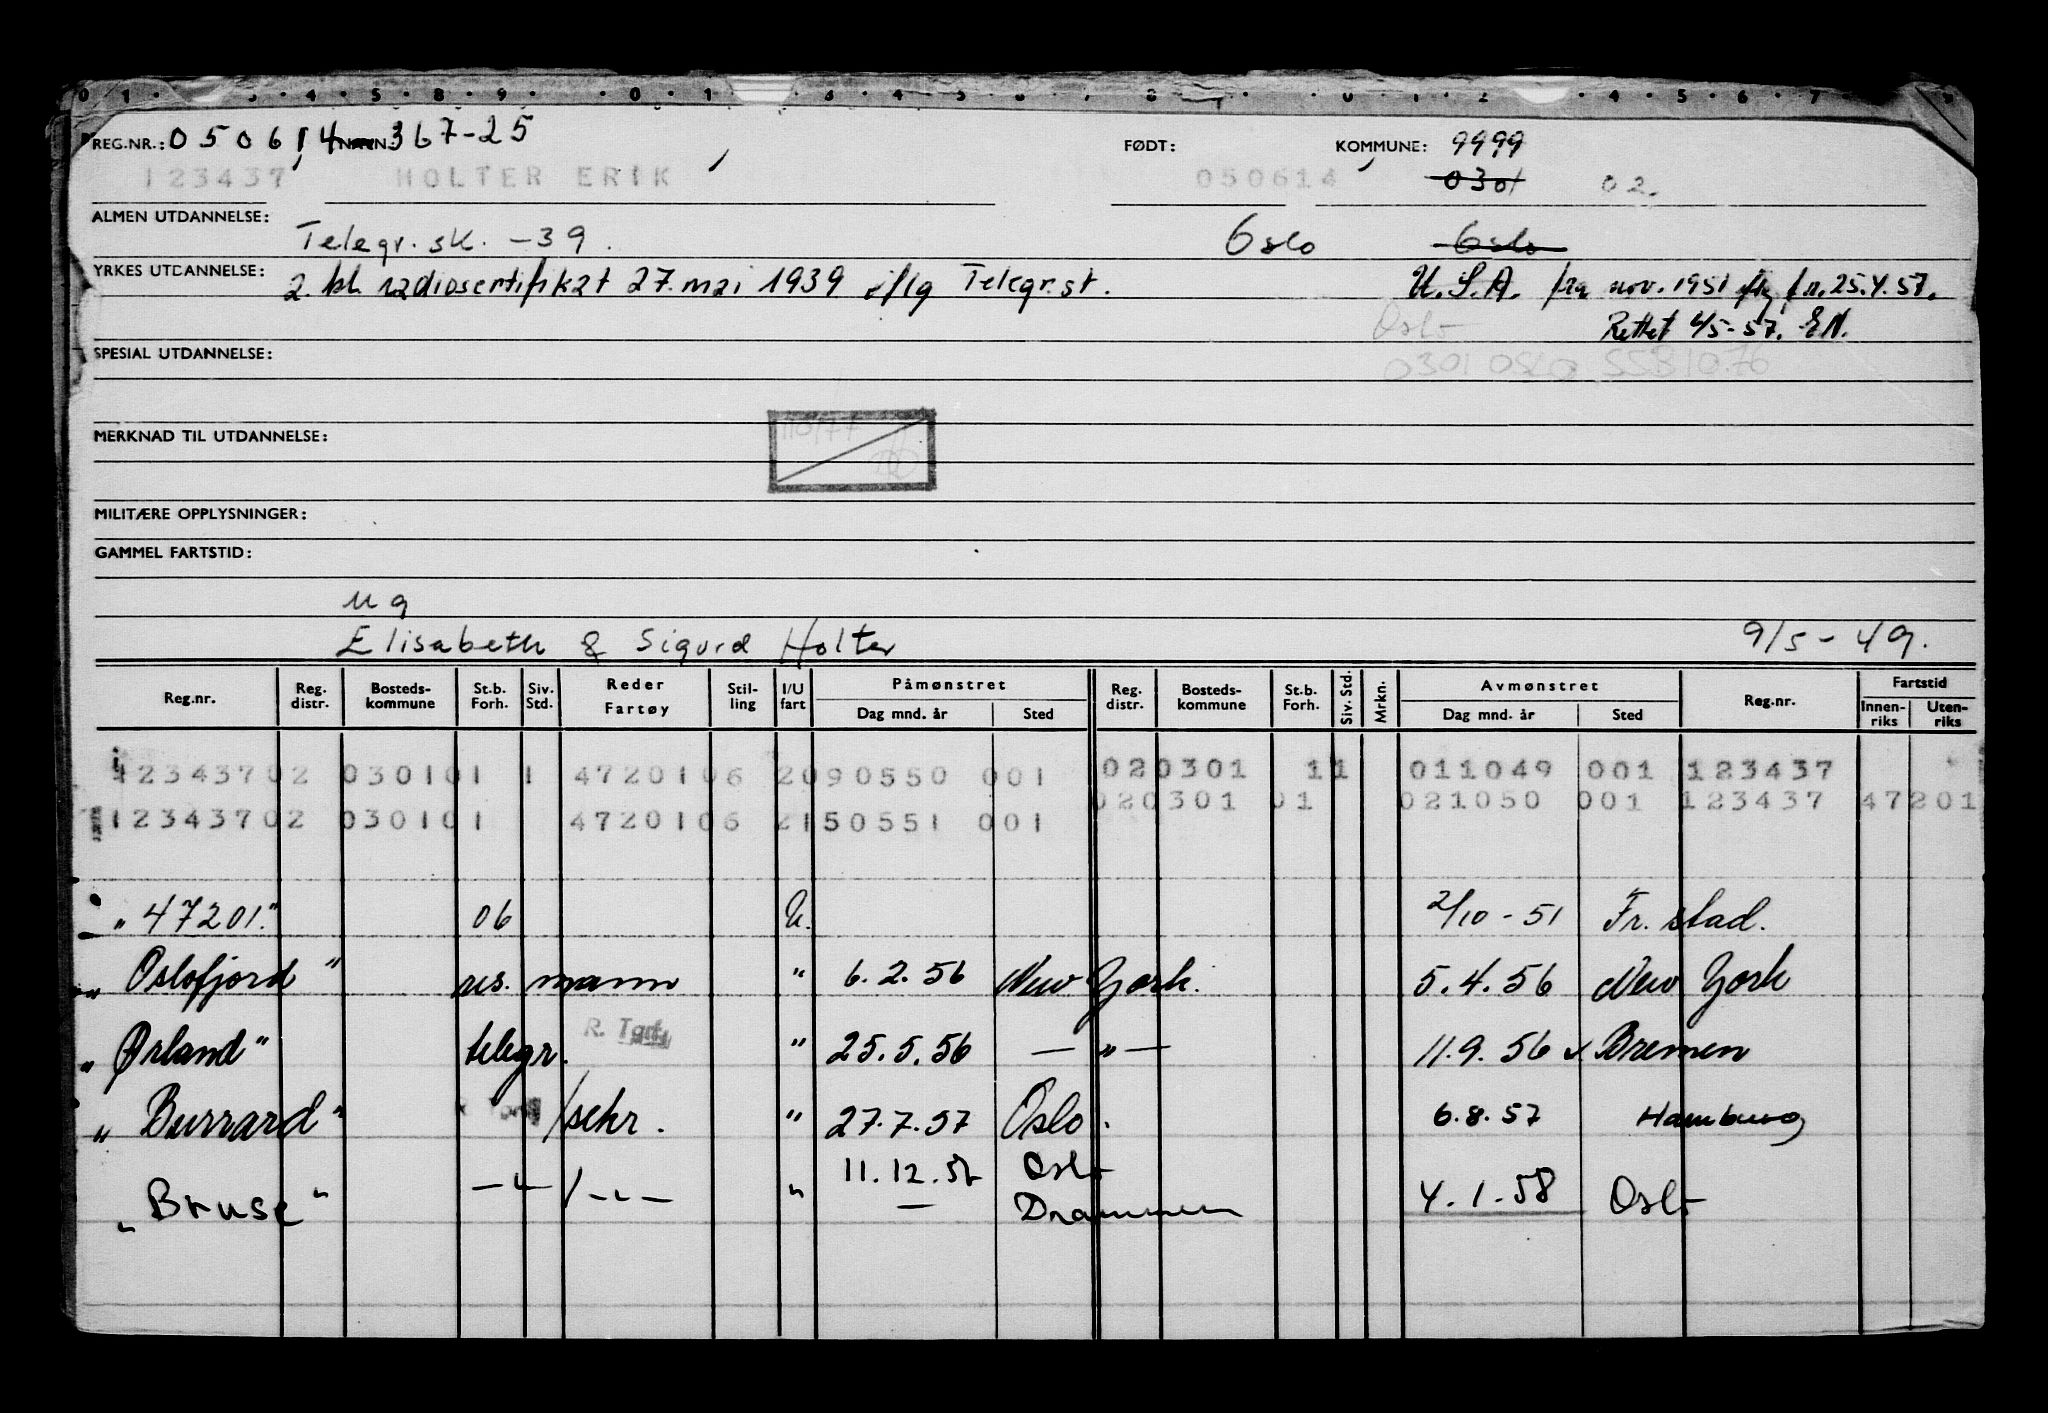 REG.NR.: 050614 NAVN: 367-25 FØDT: KOMMUNE: 9999
123437 HOLTER ERIK 050614 0301 02.
ALMEN UTDANNELSE: Telegr. sk. -39. Oslo Oslo
YRKES UTDANNELSE: 2. kl. radiosertifikat 27. mai 1939 iflg Telegr.st. U.S.A. fra nov. 1951 iflg fr. 25.4.57.
Oslo Rettet 4/5-57. EN.
SPESIAL UTDANNELSE: 0301 OSLO SSB 10.76
110/77
MERKNAD TIL UTDANNELSE:
MILITÆRE OPPLYSNINGER:
GAMMEL FARTSTID:
ug
Elisabeth & Sigurd Holter 9/5-49.
Reg.nr. Reg. distr. Bosteds-kommune St.b. Forh. Siv. Std. Reder Fartøy Stil-ling I/U fart Påmønstret Dag mnd. år Sted Reg. distr. Bosteds-kommune St.b. Forh. Siv. Std. Mrkn. Avmønstret Dag mnd. år Sted Reg.nr. Fartstid Innen-riks Uten-riks
12343702 030101 1 4720106 2090550 001 020301 11 011049 001 123437
020301 01 021050 001 123437 47201
12343702 030101 4720106 2150551 001
"47201." 06 U. 2/10-51 Fr.stad.
"Oslofjord" res. mann " 6.2.56 New York. 5.4.56 New York
"Ørland" telegr. R. " 25.5.56 — " — 11.9.56 Bremen
"Burrard" /sekr. " 27.7.57 Oslo. 6.8.57 Hamburg
"Bruse" — " — / — " — " 11.12.57 Oslo
— Drammen 4.1.58 Oslo